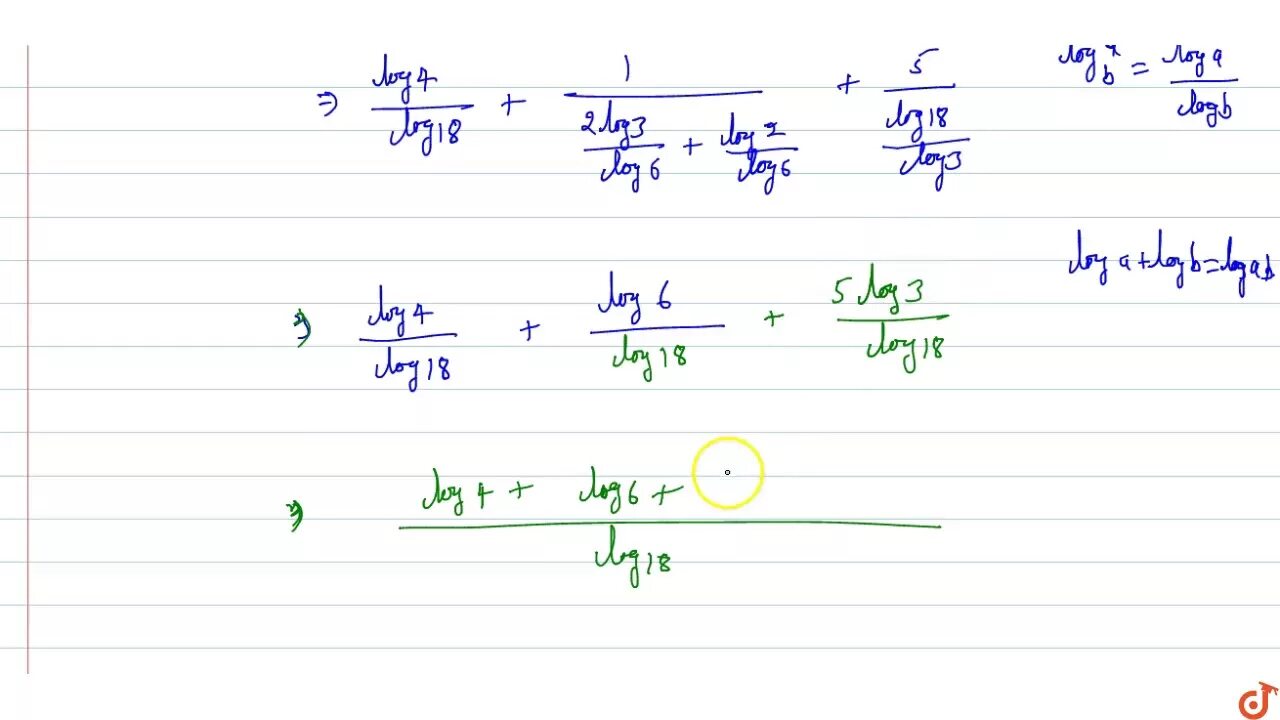 ⇒ log4/log18 + 1/(2log3/log6 + log2/log6) + 5/(log18/log3)
log_b^x = log a/log b
log a + log b = log ab
⇒ log4/log18 + log 6/log18 + 5 log3/log18
⇒ (log 4 + log6 +)/log18